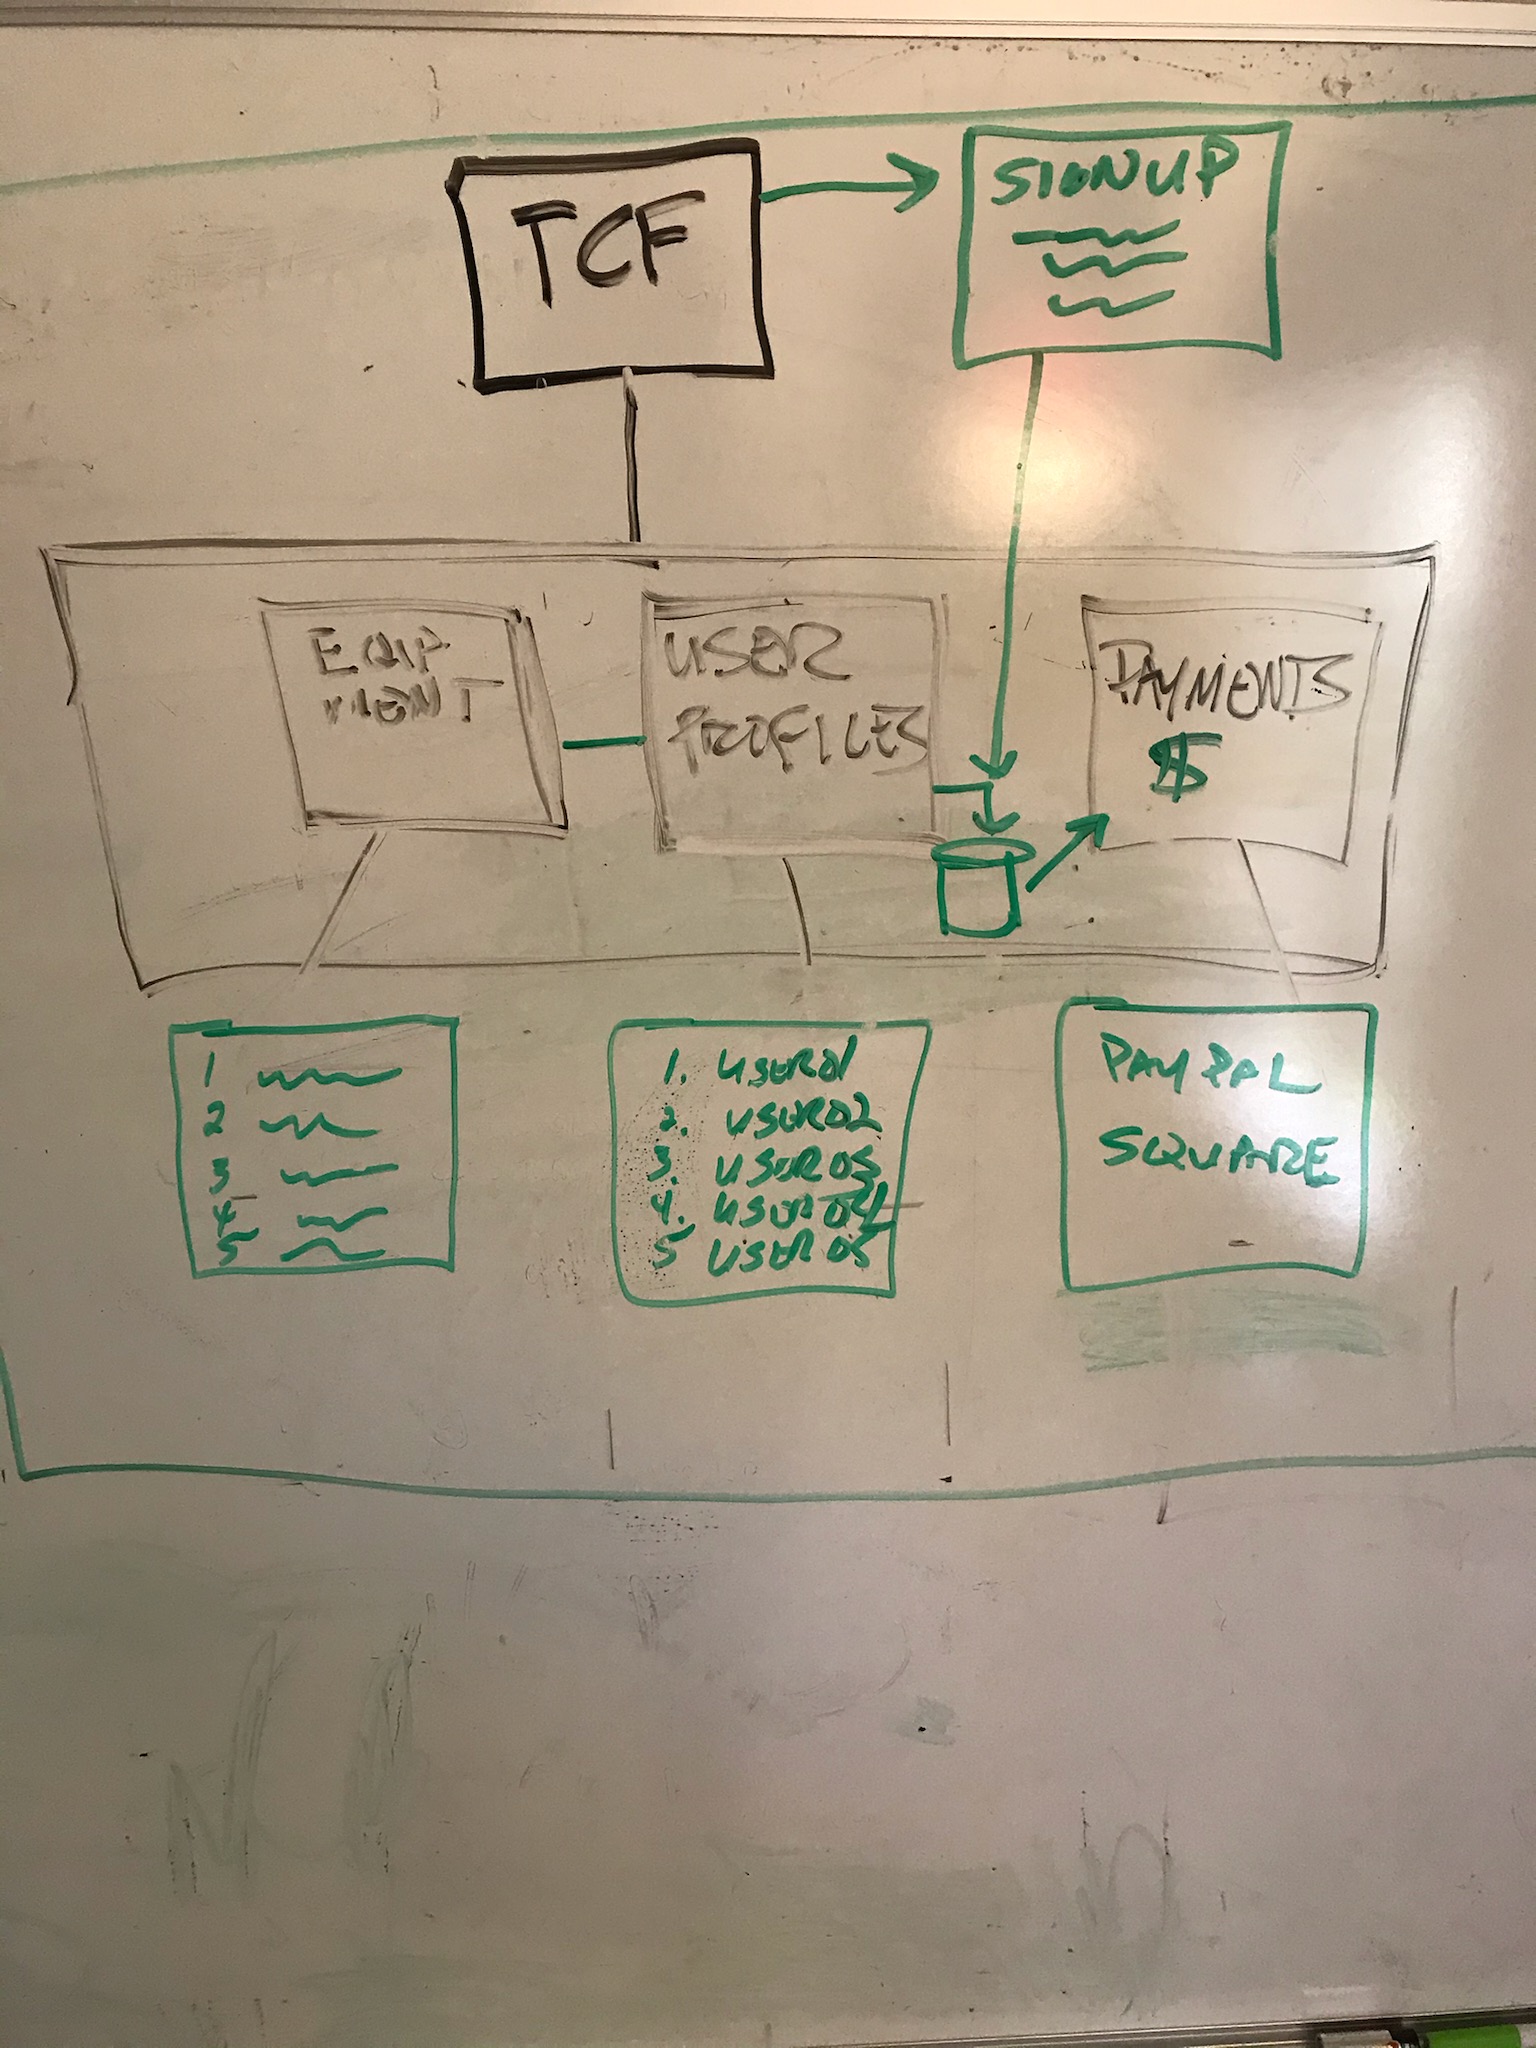 TCF
SIGNUP
EQIP
MENT
USER
PROFILES
PAYMENTS
$
1
2
3
4
5
1. USER01
2. USER02
3. USER03
4. USER04
5 USER05
PAYPAL
SQUARE